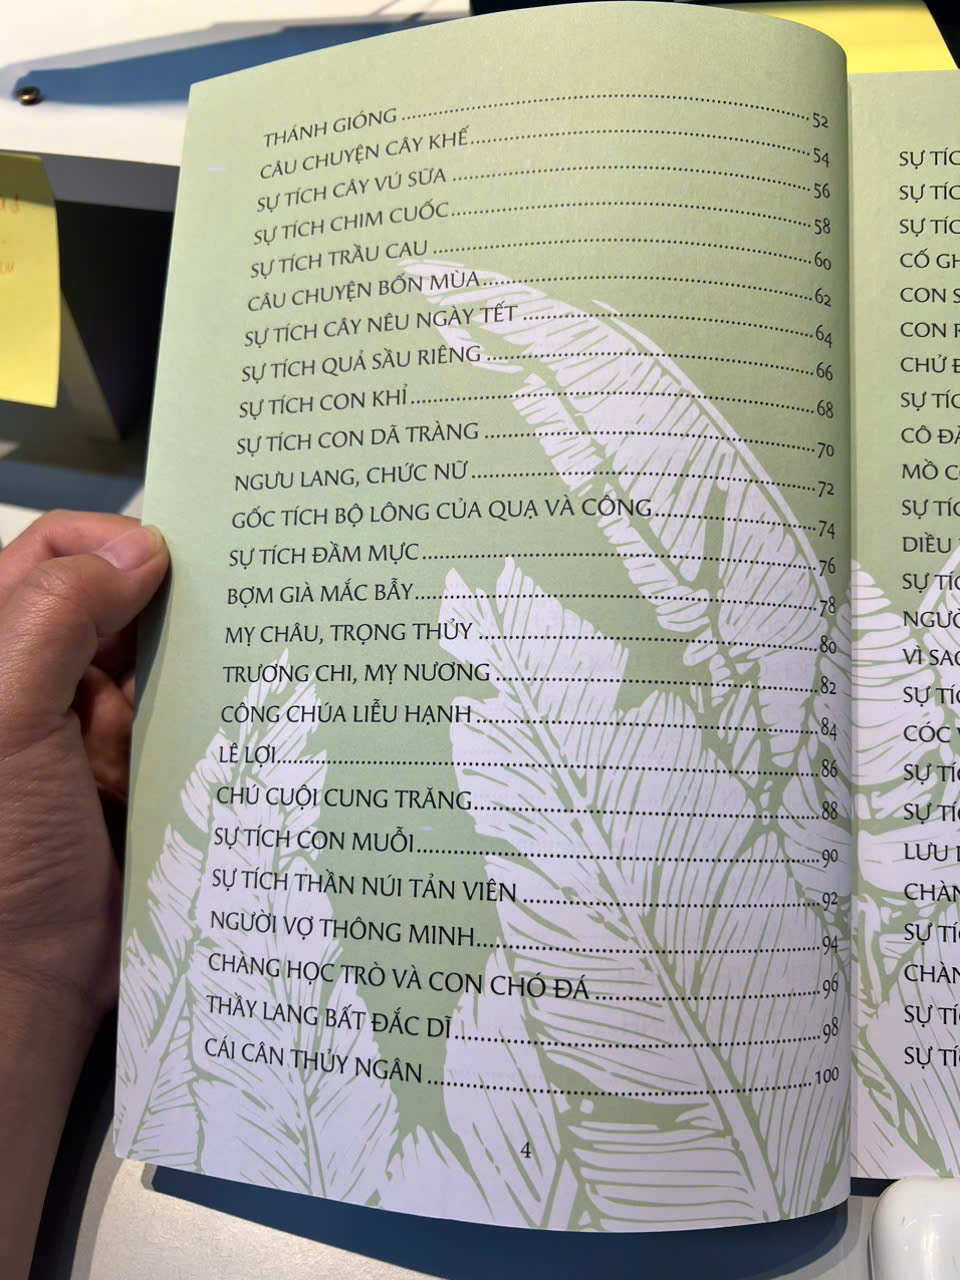 THÁNH GIÓNG ........ 52
CÂU CHUYỆN CÂY KHẾ ........ 54
SỰ TÍCH CÂY VÚ SỮA ........ 56
SỰ TÍCH CHIM CUỐC ........ 58
SỰ TÍCH TRẦU CAU ........ 60
CÂU CHUYỆN BỐN MÙA ........ 62
SỰ TÍCH CÂY NÊU NGÀY TẾT ........ 64
SỰ TÍCH QUẢ SẦU RIÊNG ........ 66
SỰ TÍCH CON KHỈ ........ 68
SỰ TÍCH CON DÃ TRÀNG ........ 70
NGƯU LANG, CHỨC NỮ ........ 72
GỐC TÍCH BỘ LÔNG CỦA QUẠ VÀ CÔNG ........ 74
SỰ TÍCH ĐẦM MỰC ........ 76
BỢM GIÀ MẮC BẪY ........ 78
MỴ CHÂU, TRỌNG THỦY ........ 80
TRƯƠNG CHI, MỴ NƯƠNG ........ 82
CÔNG CHÚA LIỄU HẠNH ........ 84
LÊ LỢI ........ 86
CHÚ CUỘI CUNG TRĂNG ........ 88
SỰ TÍCH CON MUỖI ........ 90
SỰ TÍCH THẦN NÚI TẢN VIÊN ........ 92
NGƯỜI VỢ THÔNG MINH ........ 94
CHÀNG HỌC TRÒ VÀ CON CHÓ ĐÁ ........ 96
THẦY LANG BẤT ĐẮC DĨ ........ 98
CÁI CÂN THỦY NGÂN ........ 100
4
SỰ
SỰ
SỰ
CỐ
CON
CON
CHỬ
SỰ
CÔ
MỒ
SỰ
DIỀU
SỰ
VÌ
SỰ
CÓC
SỰ
SỰ
LƯU
SỰ
SỰ
SỰ